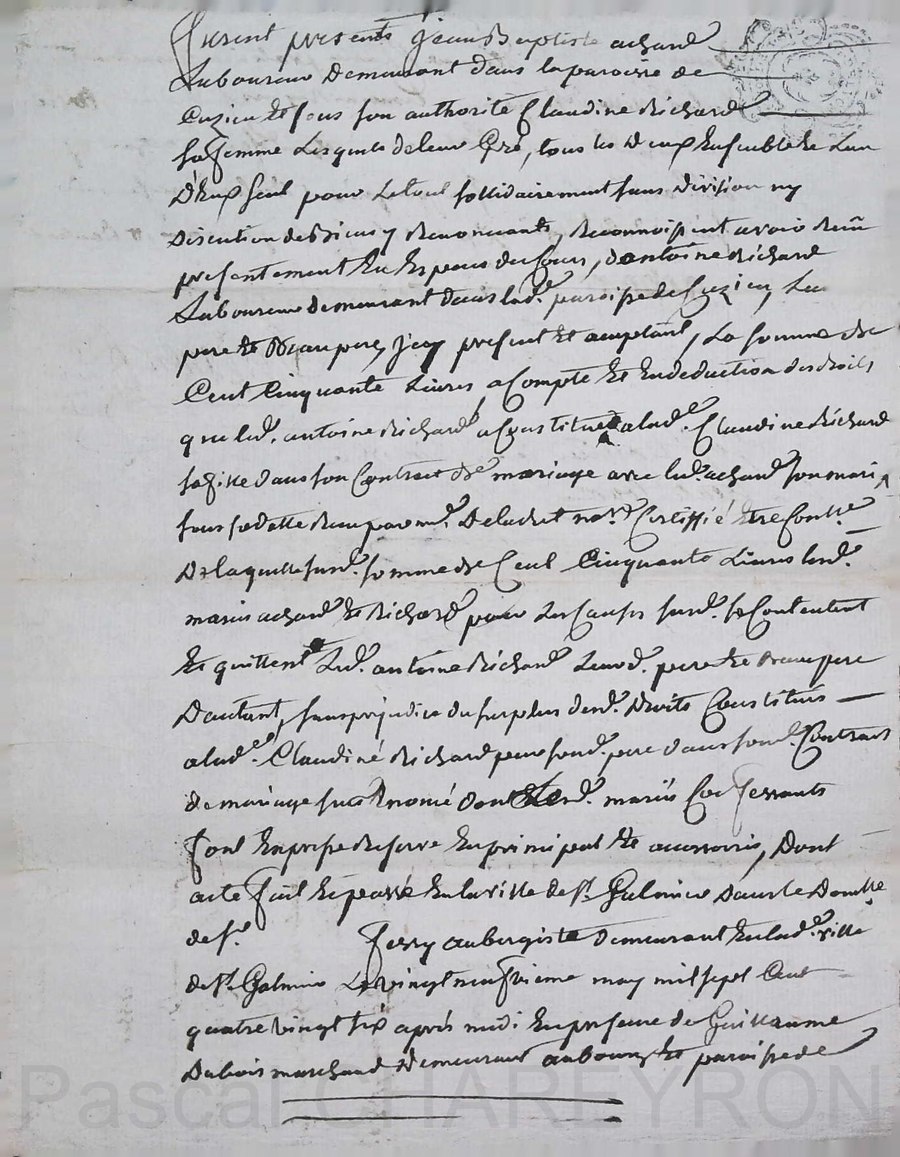 furent presents jean Baptiste achard
Laboureur demeurant dans la paroisse de
Cuzieu Et sous son authorité Claudine Richard
sa femme Lesquels de leur Gré, tous les deux Ensemble Et L'un
d'Eux seul pour Le tout sollidairement sans division ny
discution de Biens y Renonceants, Reconnoissent avoir Reçu
presentement En Especes de Cours, d'antoine Richard
Laboureur demeurant dans lad.e paroisse de Cuzieu, Leur
pere Et Beaupere, jcy present Et acceptant, La somme de
Cent Cinquante Livres, a Compte Et En deduction des droits
que led. antoine Richard a Constitué a lad.e Claudine Richard
sa fille dans son Contrat de mariage avec led. achard son mari
sous sa datte Reçu par me. Delachet no.re Certiffié Etre Contllé.
De laquelle susd. somme de Cent Cinquante Livres lesd.
mariés achard Et Richard pour Les Causes susd. se Contentent
Et quittent Led. antoine Richard Leurd. pere Et Beaupere
D'autant, sans prejudice du surplus desd. droits Constitués
a lad.e Claudine Richard par sond. pere dans sond. Contract
de mariage sus Enoncé dont Lesd. mariés Confessants
font Expresse Reserve En principal Et accessoires, Dont
acte fait Et passé En la ville de St. Galmier Dans le Domlle.
de Sr. Ferry aubergiste demeurant En lad.e ville
de St. Galmier Le vingt neufvieme may mil sept Cent
quatre vingt six après midi En presence de Guillaume
Dubois marchand demeurant au bourg Et paroisse de
Pascal CHAREYRON